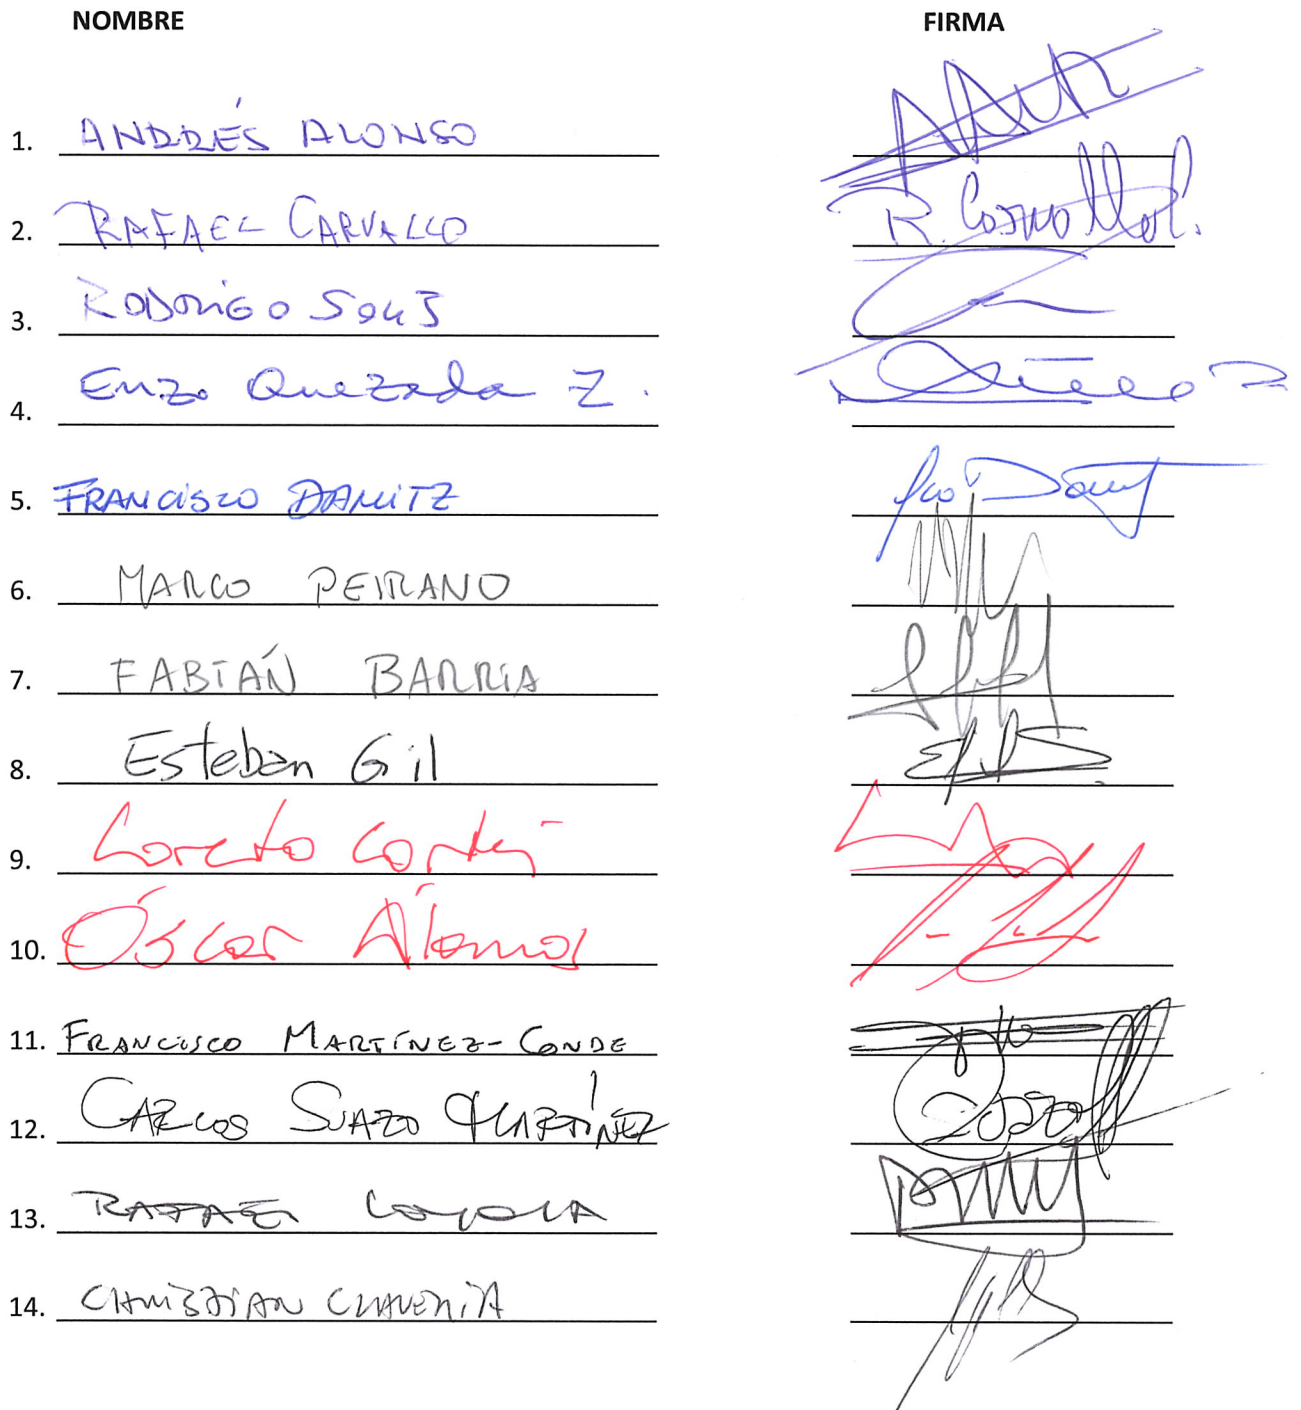 NOMBRE FIRMA
1. ANDRÉS ALONSO
2. RAFAEL CARVALLO R. Carvallo
3. RODRIGO
4. Enzo Quezada Z.
5. FRANCISCO DAMITZ
6. MARCO PEIRANO
7. FABIÁN BARRIA
8. Esteban Gil
9. Loreto Cortés
10. Óscar Álamos
11. FRANCISCO MARTÍNEZ-CONDE
12. CARLOS SUAZO MARTÍNEZ
13. RAFAEL LOYOLA
14. CHRISTIAN CHAVERRIA